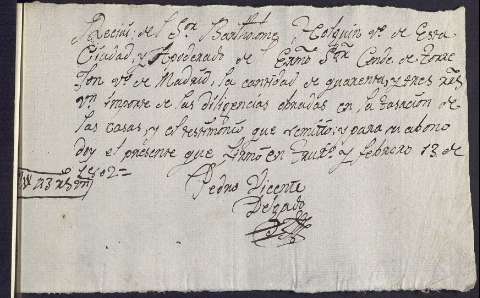 Recivi del Sor. Barthme Holguin vo. de Esta
Ciudad, y Apoderado de Exmo Sor. Conde de Torre
Jon vo. de Madrid, la cantidad de quarenta, y tres rs.
vn importe de las diligencias obradas en la tasacion de
las casas, y el testimonio que remitio; y para su abono
doy el presente que firmo en Truxo. y febrero 13 de
1802=
Pedro Vicente
Delgado
43 rs. vn